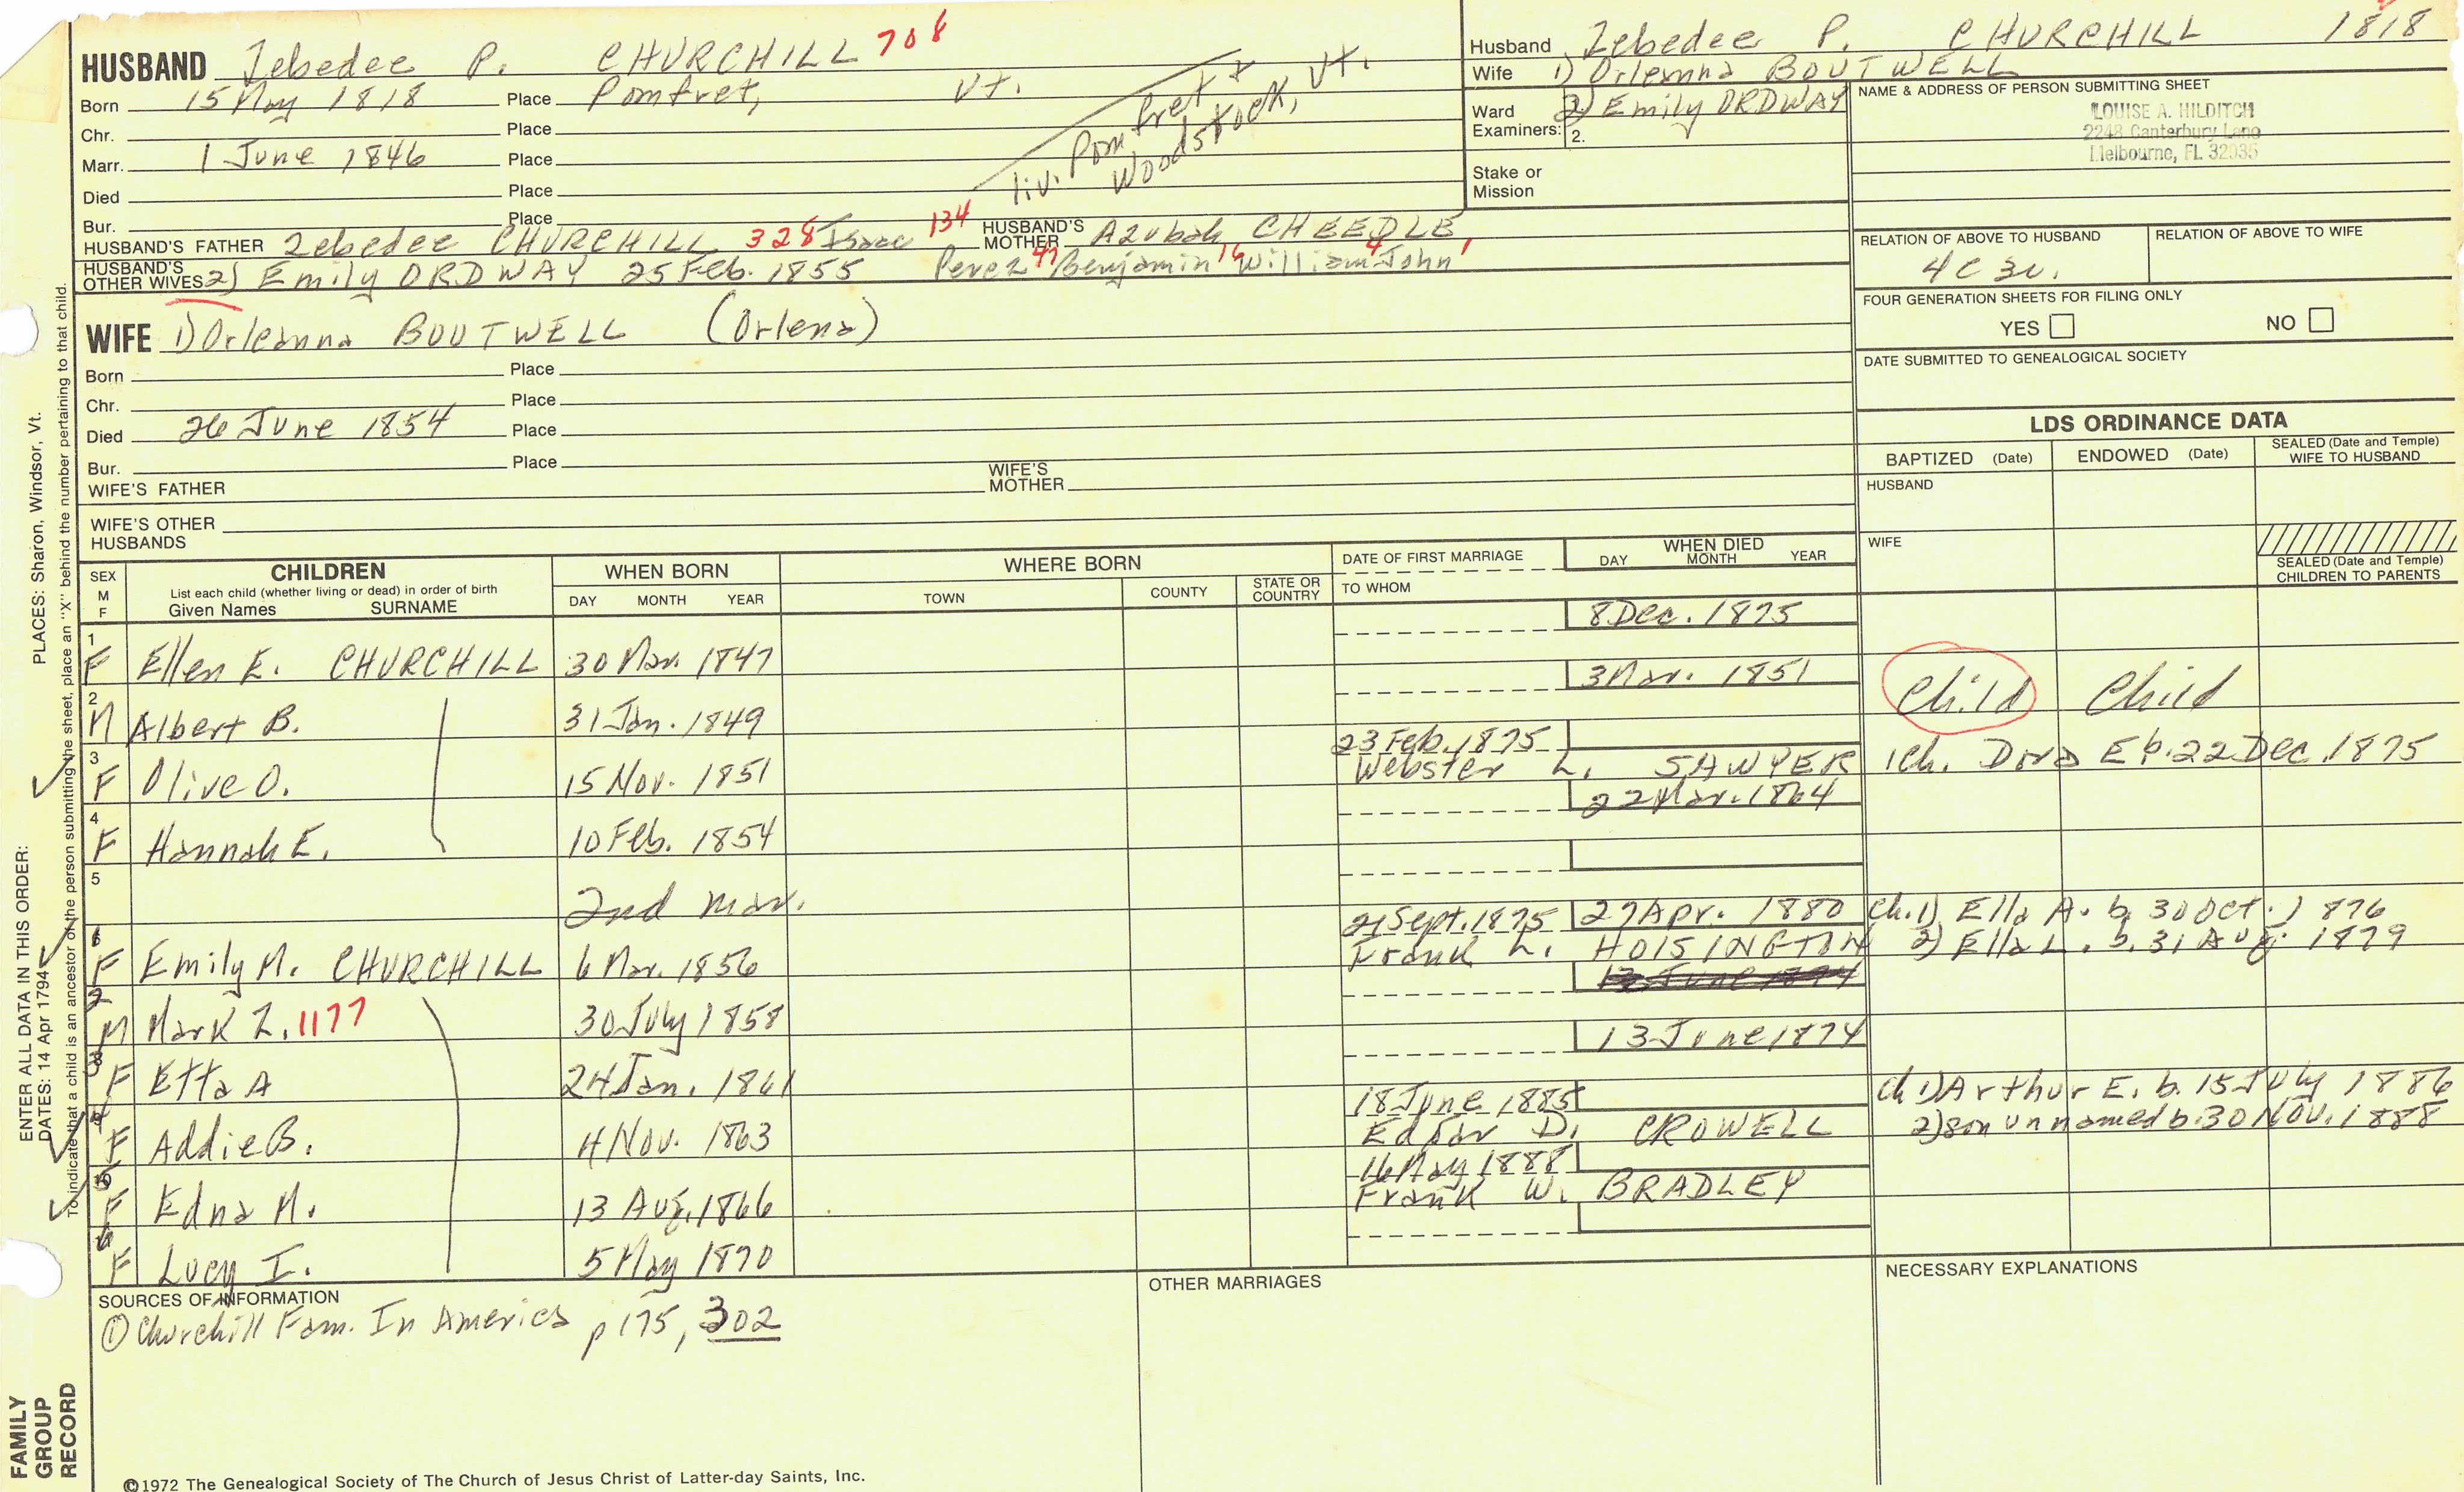 HUSBAND Zebedee P. CHURCHILL 708
Born 15 May 1818 Place Pomfret, Vt.
Chr. Place
Marr. 1 June 1846 Place
Died Place
Bur. Place
liv. Pomfret &
Woodstock, Vt.
HUSBAND'S FATHER Zebedee CHURCHILL 328 Isaac 134 HUSBAND'S MOTHER Azubah CHEEDLE
HUSBAND'S OTHER WIVES 2) Emily ORDWAY 25 Feb. 1855 Perez 47 Benjamin 16 William 4 John 1
WIFE 1) Orleanna BOUTWELL (Orlena)
Born Place
Chr. Place
Died 26 June 1854 Place
Bur. Place
WIFE'S FATHER WIFE'S MOTHER
WIFE'S OTHER HUSBANDS
Husband Zebedee P. CHURCHILL 1818
Wife 1) Orleanna BOUTWELL
Ward Examiners: 1. 2) Emily ORDWAY
2.
Stake or Mission
NAME & ADDRESS OF PERSON SUBMITTING SHEET
LOUISE A. HILDITCH
2248 Canterbury Lane
Melbourne, FL 32935
RELATION OF ABOVE TO HUSBAND RELATION OF ABOVE TO WIFE
4C 3r.
FOUR GENERATION SHEETS FOR FILING ONLY
YES NO
DATE SUBMITTED TO GENEALOGICAL SOCIETY
LDS ORDINANCE DATA
BAPTIZED (Date) ENDOWED (Date) SEALED (Date and Temple) WIFE TO HUSBAND
HUSBAND
WIFE
SEALED (Date and Temple) CHILDREN TO PARENTS
SEX M F
CHILDREN
List each child (whether living or dead) in order of birth
Given Names SURNAME
WHEN BORN
DAY MONTH YEAR
WHERE BORN
TOWN COUNTY STATE OR COUNTRY
DATE OF FIRST MARRIAGE
TO WHOM
WHEN DIED
DAY MONTH YEAR
1 F Ellen E. CHURCHILL 30 Mar. 1847 8 Dec. 1875
2 M Albert B. 31 Jan. 1849 3 Mar. 1851 Child Child
3 F Olive O. 15 Nov. 1851 23 Feb. 1875 Webster L. SAWYER 1ch. Dora E b. 22 Dec. 1875
4 F Hannah E. 10 Feb. 1854 22 Mar. 1864
5 2nd mar.
F Emily M. CHURCHILL 6 Mar. 1856 21 Sept. 1875 27 Apr. 1880 Frank L. HOISINGTON Ch. 1) Ella A. b. 30 Oct. 1876
2) Ella L. b. 31 Aug. 1879
2 M Mark Z. 1177 30 July 1858 13 June 1874
3 F Etta A 24 Jan. 1861 13 June 1874
4 F Addie B. 4 Nov. 1863 18 June 1885 Edgar D. CROWELL Ch 1) Arthur E. b. 15 July 1886
2) son unnamed b. 30 Nov. 1888
5 F Edna M. 13 Aug. 1866 16 May 1888 Frank W. BRADLEY
6 F Lucy I. 5 May 1870
SOURCES OF INFORMATION
① Churchill Fam. In America p 175, 302
OTHER MARRIAGES
NECESSARY EXPLANATIONS
©1972 The Genealogical Society of The Church of Jesus Christ of Latter-day Saints, Inc.
FAMILY GROUP RECORD
ENTER ALL DATA IN THIS ORDER:
DATES: 14 Apr 1794
PLACES: Sharon, Windsor, Vt.
To indicate that a child is an ancestor of the person submitting the sheet, place an "X" behind the number pertaining to that child.